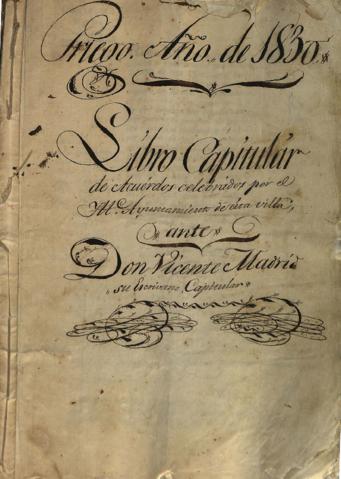 Priego. Año de 1830
Libro Capitular
de Acuérdos celebrados por el
Yll.e Ayuntamiento de esta villa,
ante
Don Vicente Madrid
su Escrivano Capitular